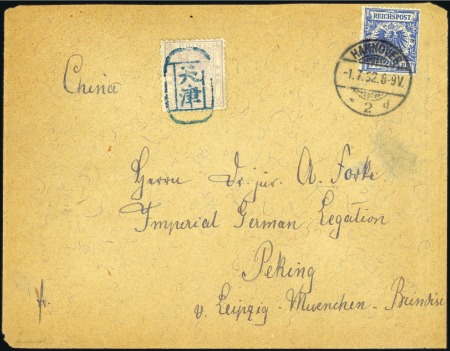 REICHSPOST
HANNOVER
-1.7.92.8-9V.
2 d
China
天津
Herrn Dr. jur. A. Forke
Imperial German Legation
Peking
v. Leipzig-Muenchen-Brindisi